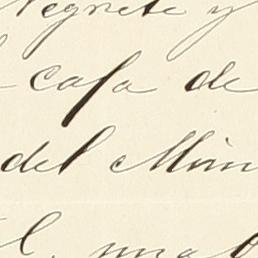 Negrete y
casa de
del Min